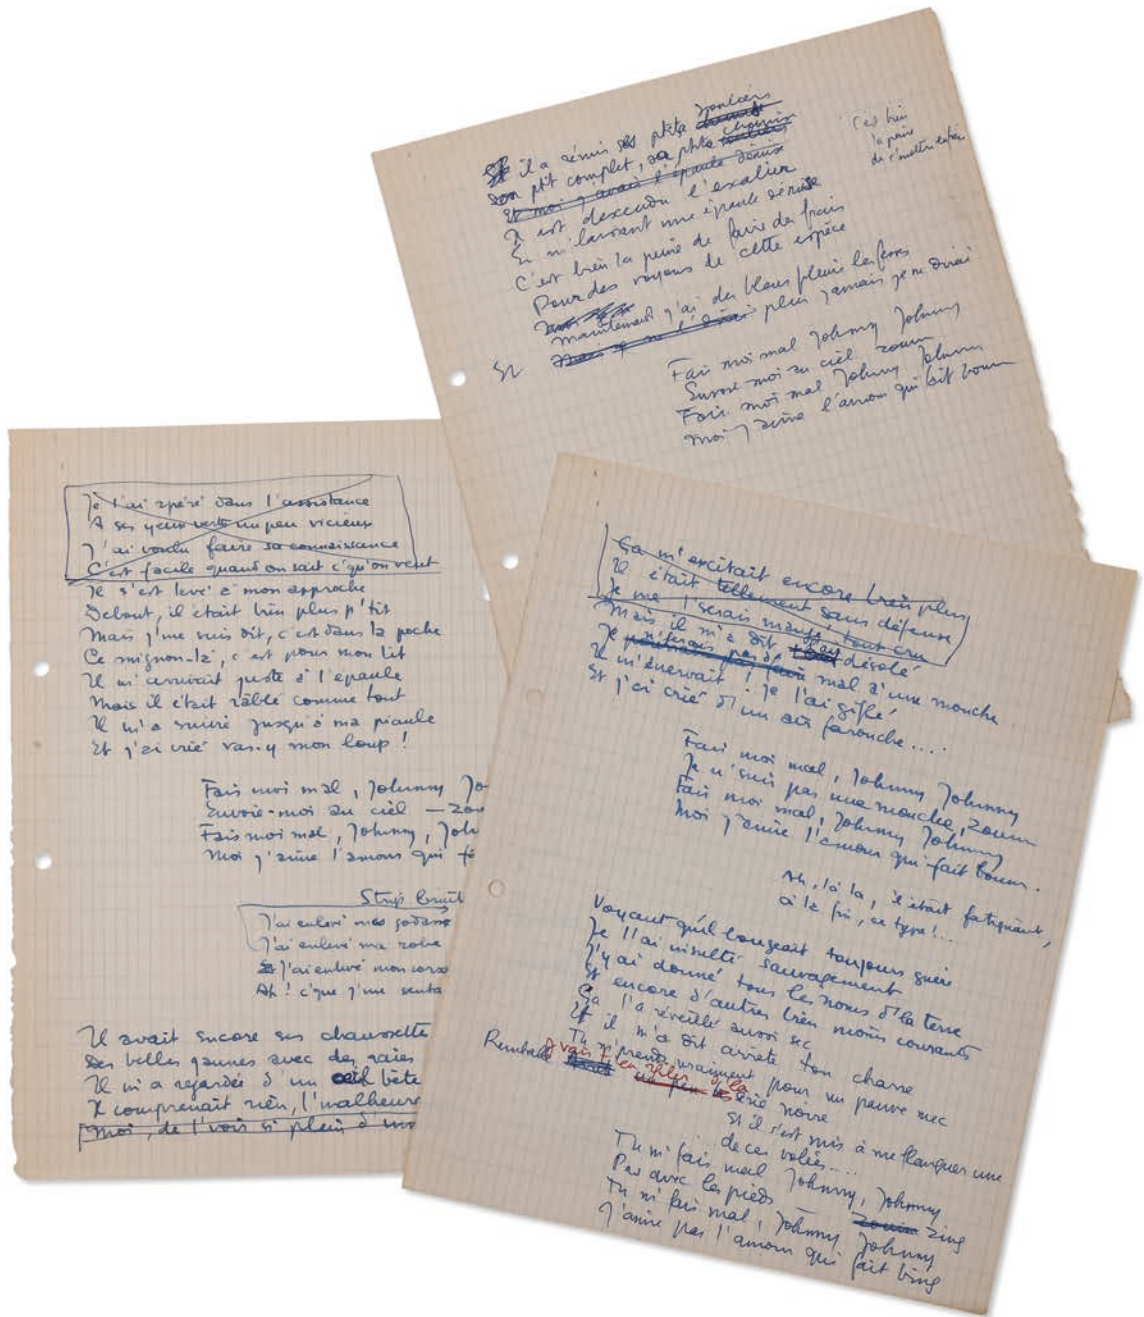 il a remis ses ptits souliers
Son ptit complet, sa ptite chemise
Et moi j'avais l'épaule démise
Il est descendu l'escalier
En m'laissant une épaule démise
C'est bien la peine de faire des frais
Pour des voyous de cette espèce
Maintenant j'ai des bleus pleins les fesses
Et plus jamais je ne dirai
C'est bien
la peine
de s'mettre en
Fais moi mal Johnny Johnny
Envoie-moi au ciel zoum
Fais moi mal Johnny Johnny
Moi j'aime l'amour qui fait boum
Je l'ai r'péré dans l'assistance
A ses yeux verts un peu vicieux
J'ai voulu faire sa connaissance
C'est facile quand on sait c'qu'on veut
Il s'est levé à mon approche
Debout, il était bien plus p'tit
Mais j'me suis dit, c'est dans la poche
Ce mignon-là, c'est pour mon lit
Il m'arrivait juste à l'épaule
Mais il était râblé comme tout
Il m'a suivie jusqu'à ma piaule
Et j'ai crié vas-y mon loup !
Fais moi mal, Johnny, Jo
Envoie-moi au ciel — zou
Fais moi mal, Johnny, Joh
Moi j'aime l'amour qui f
Strip
J'ai enlevé mes godasse
J'ai enlevé ma robe
Et J'ai enlevé mon corse
Ah ! c'que j'me senta
Il avait encore ses chaussette
Des belles jaunes avec des raies
Il m'a regardée d'un œil bête
Il comprenait rien, l'malheure
Moi, de l'voir si plein d'
Ça m'excitait encore bien plus
Il était tellement sans défense
Je me l'serais mangé tout cru
Mais il m'a dit, l'air désolé
Je n'ferais pas d'mal à une mouche
Il m'énervait ! je l'ai giflé
Et j'ai crié d'un air farouche....
Fais moi mal, Johnny Johnny
Je n'suis pas une mouche, zoum
Fais moi mal, Johnny Johnny
Moi j'aime l'amour qui fait boum.
Ah, là la, il était fatiguant,
à la fin, ce type !...
Voyant qu'il bougeait toujours guère
Je l'ai insulté sauvagement
J'y ai donné tous les noms d'la terre
Et encore d'autres bien moins courants
Ça l'a réveillé aussi sec
Et il m'a dit arrête ton charre
Tu m'prends vraiment pour un pauvre mec
J'vais t'en r'filer d'la série noire
Et il s'est mis à me flanquer une
de ces volées....
Tu m'fais mal Johnny, Johnny
Pas avec les pieds zoum zing
Tu m'fais mal, Johnny Johnny
J'aime pas l'amour qui fait bing